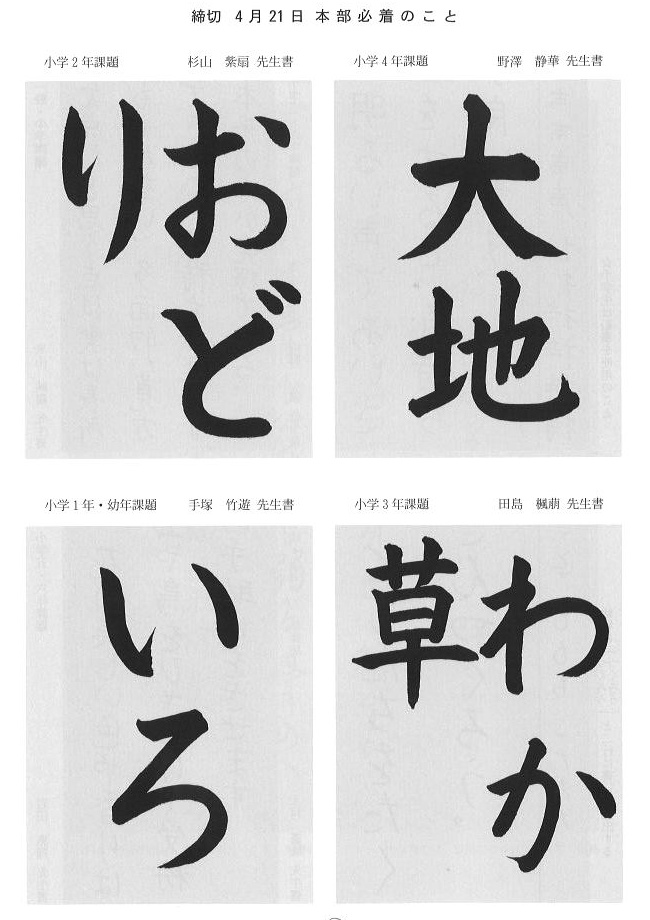 締切 4月21日 本部必着のこと
小学2年課題 杉山 紫扇 先生書
おど
り
小学4年課題 野澤 静華 先生書
大地
小学1年・幼年課題 手塚 竹遊 先生書
いろ
小学3年課題 田島 楓萠 先生書
わか
草